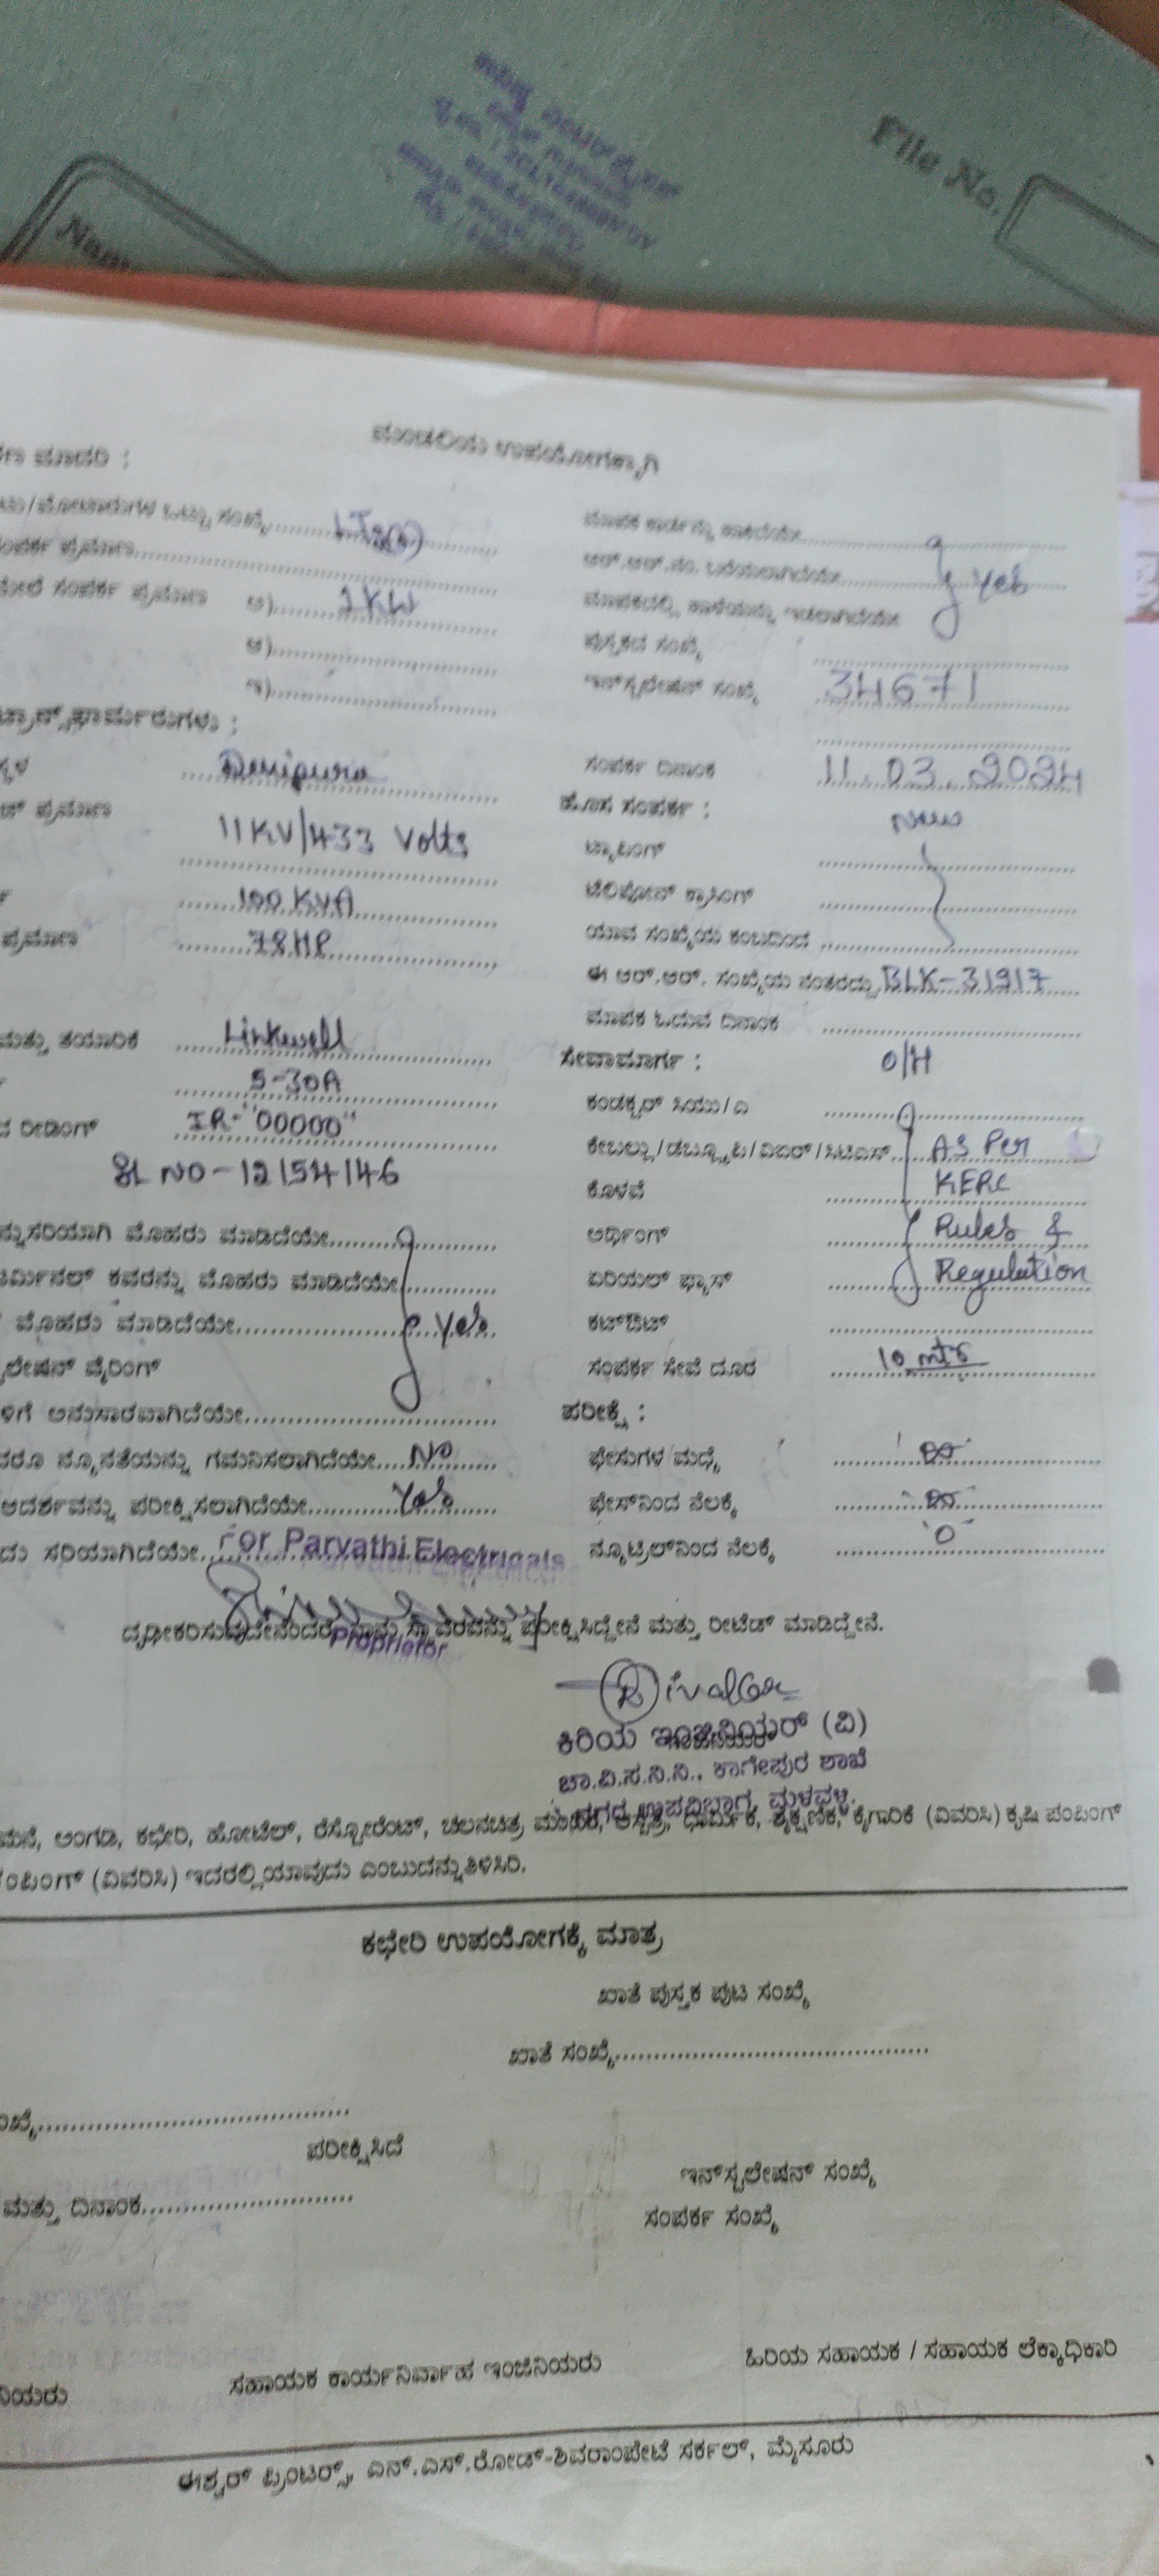 File No.
Nam
ಮಂಡಲಿಯ ಉಪಯೋಗಕ್ಕಾಗಿ
ಮಾದರಿ :
ಒಟ್ಟು ಸಂಖ್ಯೆ
ಸಂಪರ್ಕ ಪ್ರಮಾಣ
ಸಂಪರ್ಕ ಪ್ರಮಾಣ ಅ) 1KW
ಆ)
ಇ)
ಟ್ರಾನ್ಸ್‌ಫಾರ್ಮರುಗಳು :
11KV/433 Volts
100 KVA
ಪ್ರಮಾಣ 78HP
ಮತ್ತು ತಯಾರಿಕೆ Linkwell
5-30A
ರೀಡಿಂಗ್ IR-"00000"
SL NO-12154146
ಮೊಹರು ಮಾಡಿದೆಯೇ
ಟರ್ಮಿನಲ್ ಕವರನ್ನು ಮೊಹರು ಮಾಡಿದೆಯೇ
ಮೊಹರು ಮಾಡಿದೆಯೇ Yes
ವೈರಿಂಗ್
ಅನುಸಾರವಾಗಿದೆಯೇ
ನ್ಯೂನತೆಯನ್ನು ಗಮನಿಸಲಾಗಿದೆಯೇ No
ಪರೀಕ್ಷಿಸಲಾಗಿದೆಯೇ Yes
ಸರಿಯಾಗಿದೆಯೇ
For Parvathi Electricals
Proprietor
yes
ಪುಸ್ತಕದ ಸಂಖ್ಯೆ
ಇನ್‌ಸ್ಟಲೇಷನ್ ಸಂಖ್ಯೆ 34671
ಸಂಪರ್ಕ ದಿನಾಂಕ 11.03.2024
ಹೊಸ ಸಂಪರ್ಕ : New
ಟ್ಯಾಪಿಂಗ್
ಟೆಲಿಫೋನ್ ಕ್ರಾಸಿಂಗ್
ಯಾವ ಸಂಖ್ಯೆಯ ಕಂಬದಿಂದ
ಈ ಆರ್.ಆರ್. ಸಂಖ್ಯೆಯ ನಂತರದ್ದು BLK-31917
ಮಾಪಕ ಓದುವ ದಿನಾಂಕ
ಸೇವಾಮಾರ್ಗ : O/H
ಕಂಡಕ್ಟರ್ ಸಿಯು/ಎ
ಕೇಬಲ್ಲು/ಡಬ್ಲ್ಯೂಪಿ/ವಿಐಆರ್/ಸಿಟಿಎಸ್ AS Per
ಕೊಳವೆ KERC
ಅರ್ಥಿಂಗ್ Rules &
ಏರಿಯಲ್ ಫ್ಯೂಸ್ Regulation
ಕಟ್‌ಔಟ್
ಸಂಪರ್ಕ ಸೇವೆ ದೂರ 10 mts
ಪರೀಕ್ಷೆ :
ಫೇಸುಗಳ ಮಧ್ಯೆ ∞
ಫೇಸ್‌ನಿಂದ ನೆಲಕ್ಕೆ ∞
ನ್ಯೂಟ್ರಲ್‌ನಿಂದ ನೆಲಕ್ಕೆ 0
ದೃಢೀಕರಿಸುವುದೇನೆಂದರೆ, ನಾನು ಸ್ಥಾವರವನ್ನು ಪರೀಕ್ಷಿಸಿದ್ದೇನೆ ಮತ್ತು ರೀಟೆಡ್ ಮಾಡಿದ್ದೇನೆ.
ಕಿರಿಯ ಇಂಜಿನಿಯರ್ (ವಿ)
ಚಾ.ವಿ.ಸ.ನಿ.ನಿ., ಕಾಗೇಪುರ ಶಾಖೆ
ನಗರ ಉಪವಿಭಾಗ, ಮಳವಳ್ಳಿ.
ಮನೆ, ಅಂಗಡಿ, ಕಛೇರಿ, ಹೋಟೆಲ್, ರೆಸ್ಟೋರೆಂಟ್, ಚಲನಚಿತ್ರ ಮಂದಿರ, ಆಸ್ಪತ್ರೆ, ಧಾರ್ಮಿಕ, ಶೈಕ್ಷಣಿಕ, ಕೈಗಾರಿಕೆ (ವಿವರಿಸಿ) ಕೃಷಿ ಪಂಪಿಂಗ್
ಪಂಪಿಂಗ್ (ವಿವರಿಸಿ) ಇದರಲ್ಲಿ ಯಾವುದು ಎಂಬುದನ್ನು ತಿಳಿಸಿರಿ.
ಕಛೇರಿ ಉಪಯೋಗಕ್ಕೆ ಮಾತ್ರ
ಖಾತೆ ಪುಸ್ತಕ ಪುಟ ಸಂಖ್ಯೆ
ಖಾತೆ ಸಂಖ್ಯೆ
ಪರೀಕ್ಷಿಸಿದೆ
ಇನ್‌ಸ್ಟಲೇಷನ್ ಸಂಖ್ಯೆ
ಮತ್ತು ದಿನಾಂಕ
ಸಂಪರ್ಕ ಸಂಖ್ಯೆ
ಸಹಾಯಕ ಕಾರ್ಯನಿರ್ವಾಹಕ ಇಂಜಿನಿಯರು
ಹಿರಿಯ ಸಹಾಯಕ / ಸಹಾಯಕ ಲೆಕ್ಕಾಧಿಕಾರಿ
ಈಶ್ವರ್ ಪ್ರಿಂಟರ್ಸ್, ಎನ್.ಎಸ್.ರೋಡ್-ಶಿವರಾಂಪೇಟೆ ಸರ್ಕಲ್, ಮೈಸೂರು